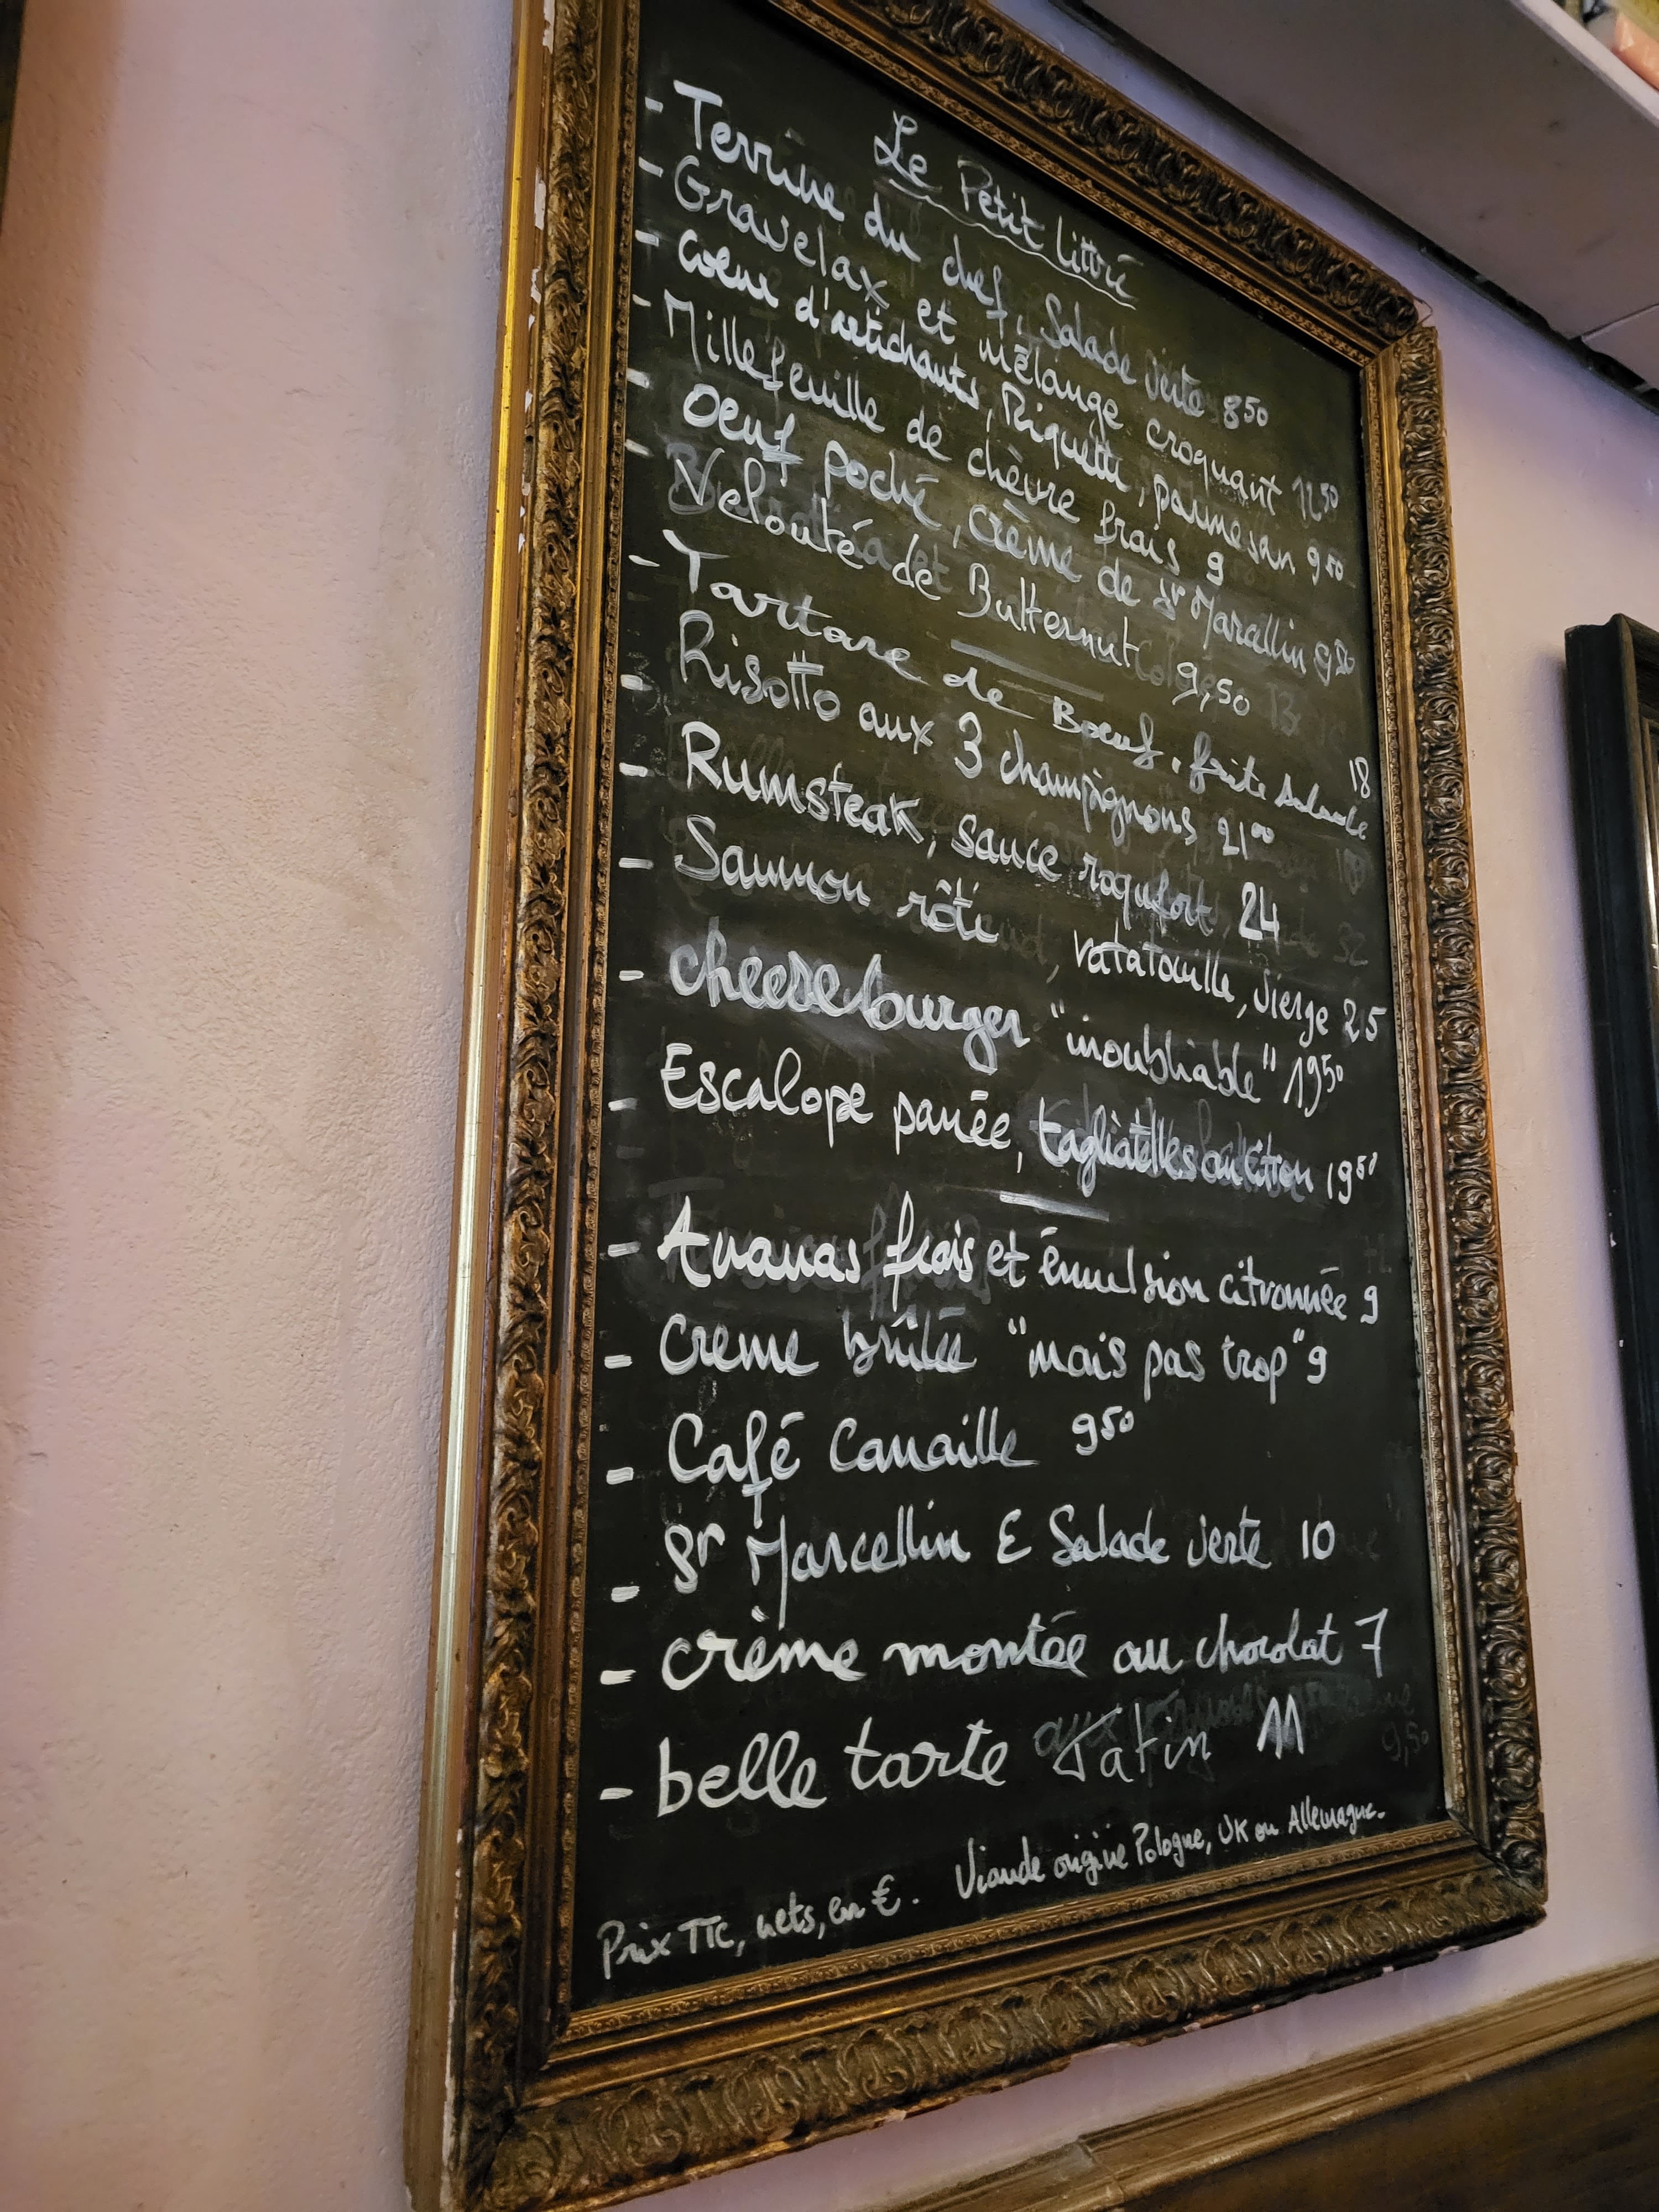 Le Petit Littré
- Terrine du chef, Salade verte 8 50
- Gravelax et mélange croquant 12 50
- Coeur d'artichauts, Riquette, parmesan 9 50
- Millefeuille de chèvre frais 9
- Oeuf poché, crème de St Marcellin 9 50
- Velouté de Butternut 9,50
- Tartare de Boeuf, frite salade 18
- Risotto aux 3 champignons 21 00
- Rumsteak, sauce roquefort 24
- Saumon rôti, ratatouille, vierge 25
- cheeseburger "inoubliable" 19 50
- Escalope panée, tagliatelles au citron 19 50
- Ananas frais et émulsion citronnée 9
- Creme brûlée "mais pas trop" 9
- Café Canaille 9 50
- St Marcellin & Salade verte 10
- crème montée au chocolat 7
- belle tarte Tatin 11
Prix TTC, nets, en €. Viande origine Pologne, UK ou Allemagne.